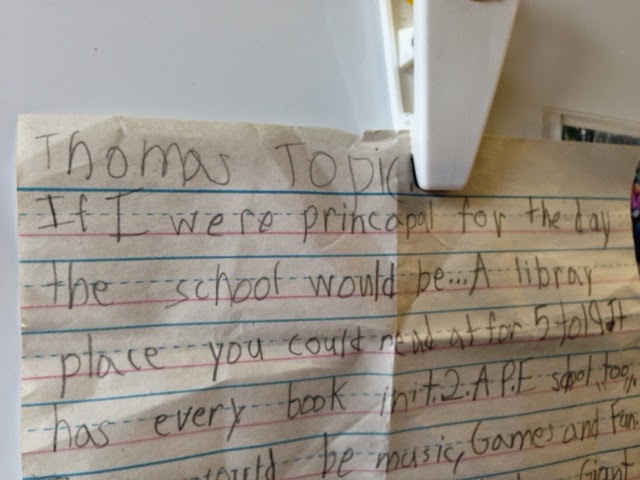 Thomas Topic
If I were princapal for the day
the school would be... A libray
place you could read at for 5 to 19. It
has every book in it. 2. A P.E school, too,
would be music, Games and Fun.
Giant